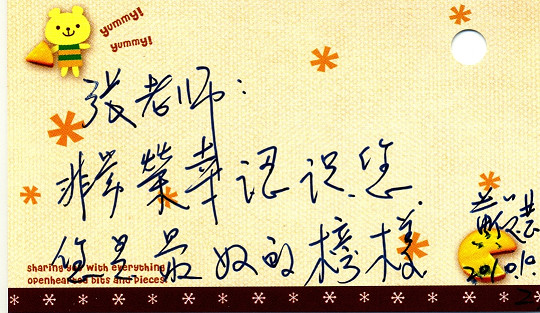 yummy!
yummy!
张老师:
非常荣幸认识您.
您是最好的榜样
2010.10.
2
sharing you with everything
openhearted bits and pieces!